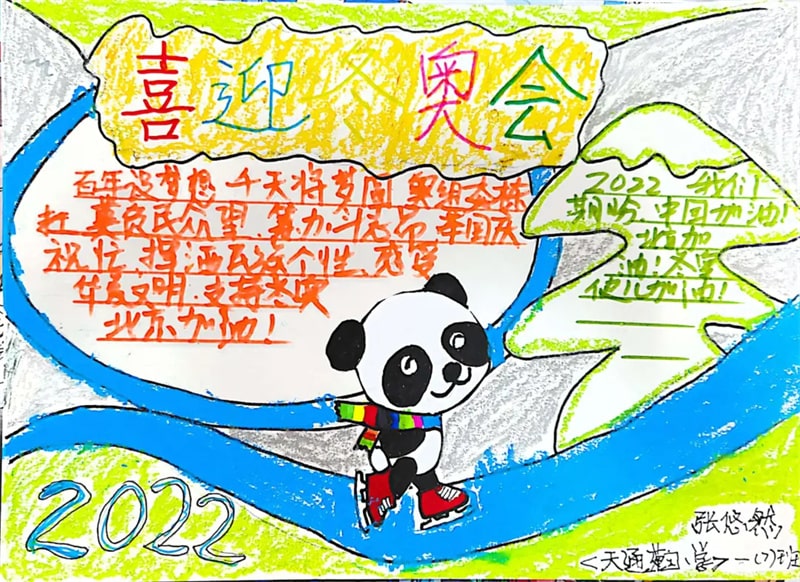 喜迎冬奥会
百年没梦想 千天将梦圆 奥组委扛
莫负民众望 努力斗志昂 举国庆
祝忙 挥洒民族个性 感受
华夏文明 支持冬奥
北京加油！
2022 我们
期盼 中国加油！
北京加
油！冬奥
健儿加油！
2022
张悠然
<天通苑小学>一(7)班